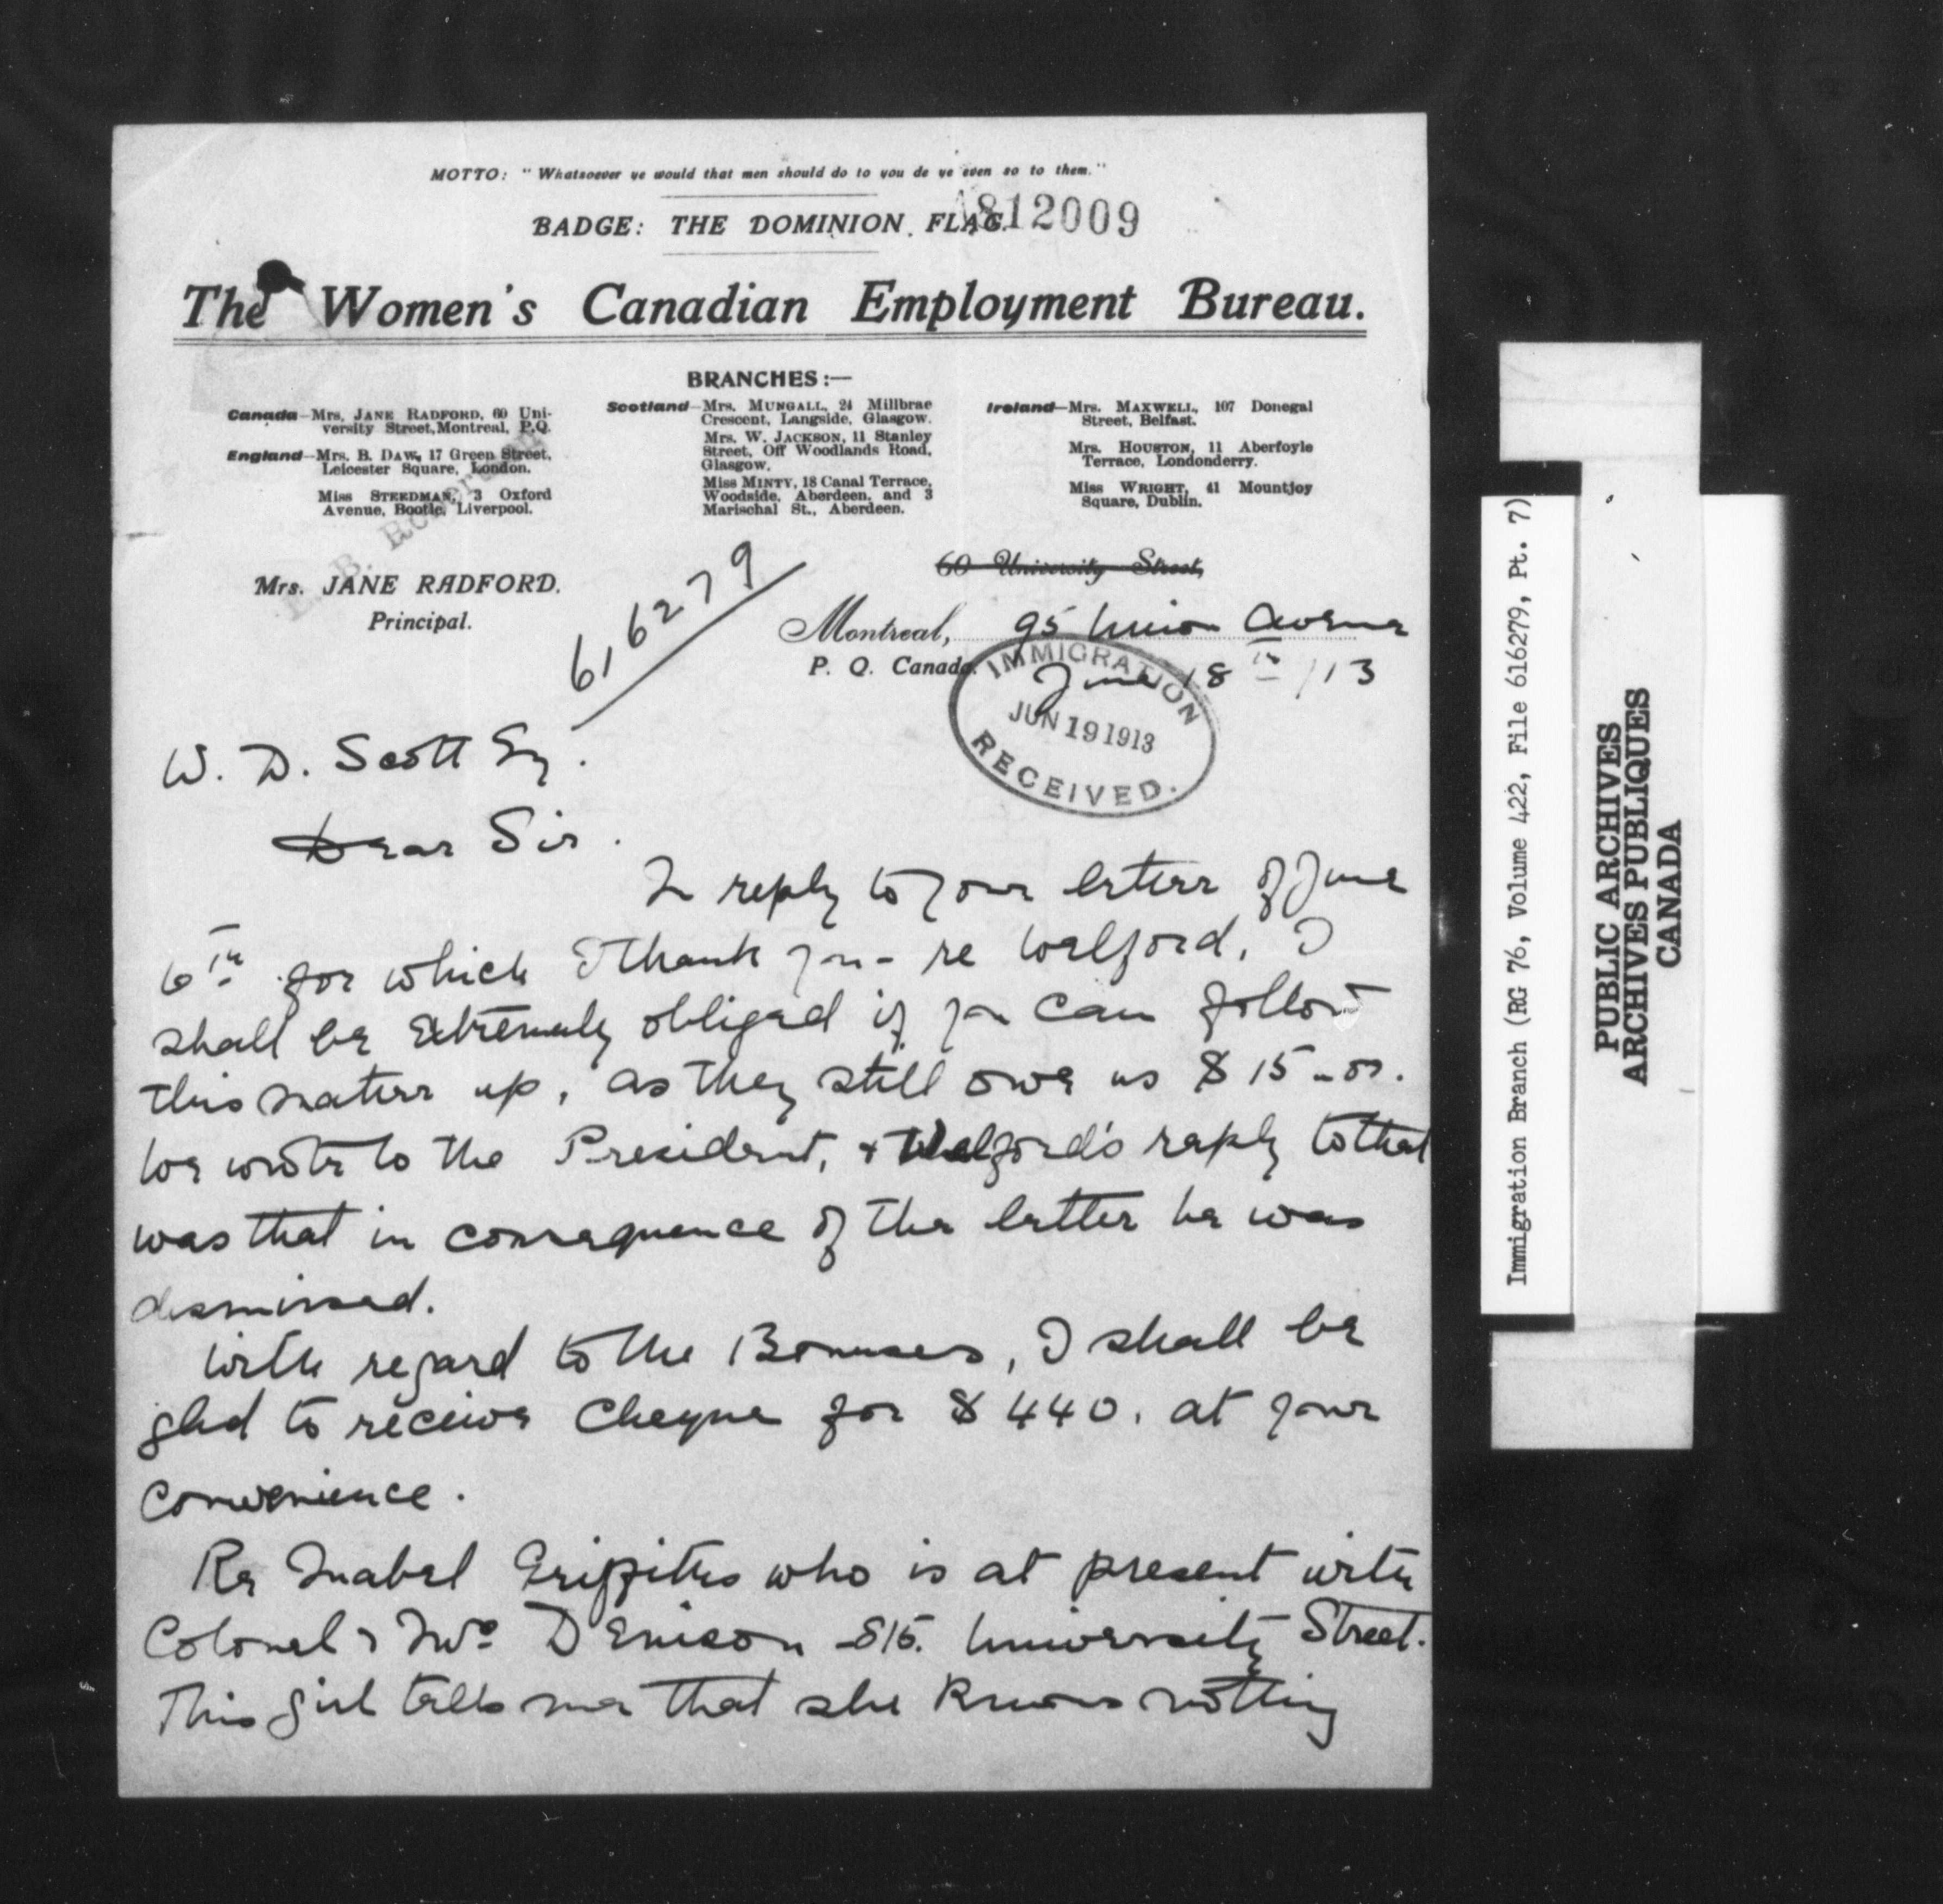 MOTTO: " Whatsoever ye would that men should do to you de ye even so to them."
BADGE: THE DOMINION FLAG.
812009
The Women's Canadian Employment Bureau.
BRANCHES :—
Canada—Mrs. JANE RADFORD, 60 Uni-
versity Street, Montreal, P.Q.
England—Mrs. B. DAW, 17 Green Street,
Leicester Square, London.
Miss STEEDMAN, 3 Oxford
Avenue, Bootle, Liverpool.
Scotland—Mrs. MUNGALL, 24 Millbrae
Crescent, Langside, Glasgow.
Mrs. W. JACKSON, 11 Stanley
Street, Off Woodlands Road,
Glasgow.
Miss MINTY, 18 Canal Terrace,
Woodside, Aberdeen, and 3
Marischal St., Aberdeen.
Ireland—Mrs. MAXWELL, 107 Donegal
Street, Belfast.
Mrs. HOUSTON, 11 Aberfoyle
Terrace, Londonderry.
Miss WRIGHT, 41 Mountjoy
Square, Dublin.
Mrs. JANE RADFORD.
Principal.
616279
60 University Street,
Montreal, 95 Union Avenue
P. Q. Canada. June 18th /13
IMMIGRATION
JUN 19 1913
RECEIVED.
W. D. Scott Esq.
Dear Sir.
In reply to your letter of June
6th for which I thank you - re Welford, I
shall be extremely obliged if you can follow
this matter up, as they still owe us $15-00.
We wrote to the President, & Welford's reply to that
was that in consequence of the letter he was
dismissed.
With regard to the Bonuses, I shall be
glad to receive cheque for $440. at your
convenience.
Re Mabel Griffiths who is at present with
Colonel & Mrs Denison 815. University Street.
This girl tells me that she knows nothing
Immigration Branch (RG 76, Volume 422, File 616279, Pt. 7)
PUBLIC ARCHIVES
ARCHIVES PUBLIQUES
CANADA